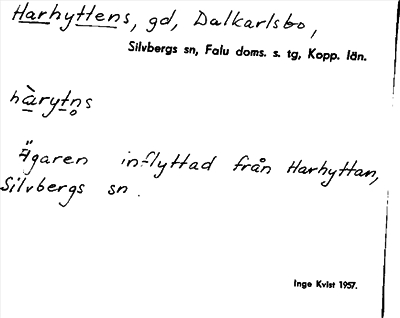 Harhyttens, gd, Dalkarlsbo,
Silvbergs sn, Falu doms. s. tg, Kopp. län.
hàrytn̥s
Ägaren inflyttad från Harhyttan,
Silvbergs sn.
Inge Kvist 1957.